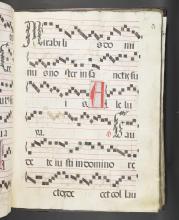 Mirabilis do mi
nus no ster in san ctis su
is. A le lu
ia. Gau
de te iusti in domino re
ctos de cet col lau